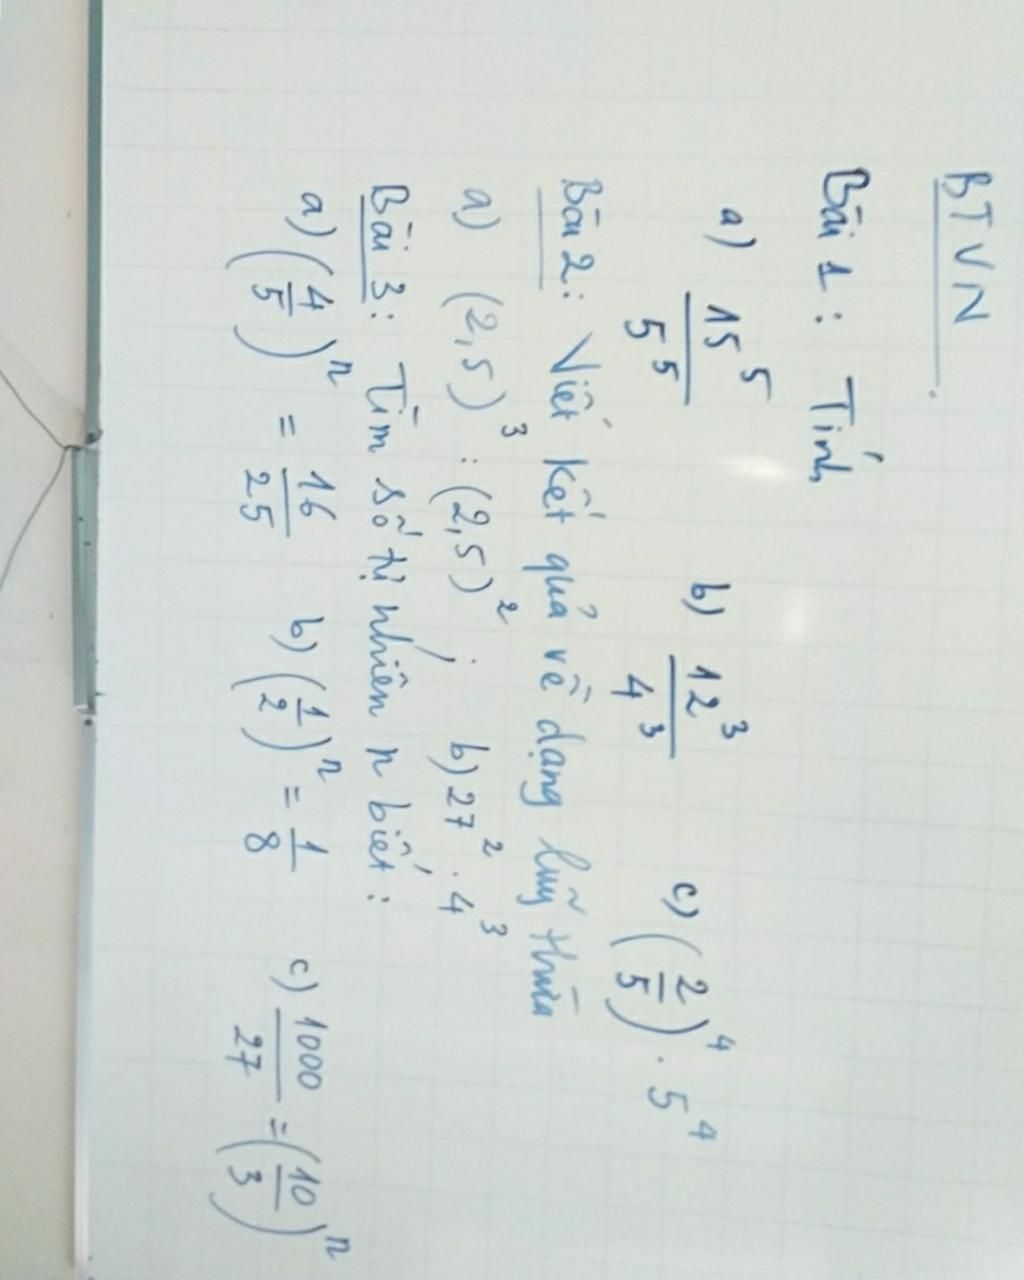 BTVN
Bài 1: Tính
a) 15^5/5^5 b) 12^3/4^3 c) (2/5)^4 . 5^4
Bài 2: Viết kết quả về dạng luỹ thừa
a) (2,5)^3 : (2,5)^2 ; b) 27^2 . 4^3
Bài 3: Tìm số tự nhiên n biết:
a) (4/5)^n = 16/25 b) (1/2)^n = 1/8 c) 1000/27 = (10/3)^n